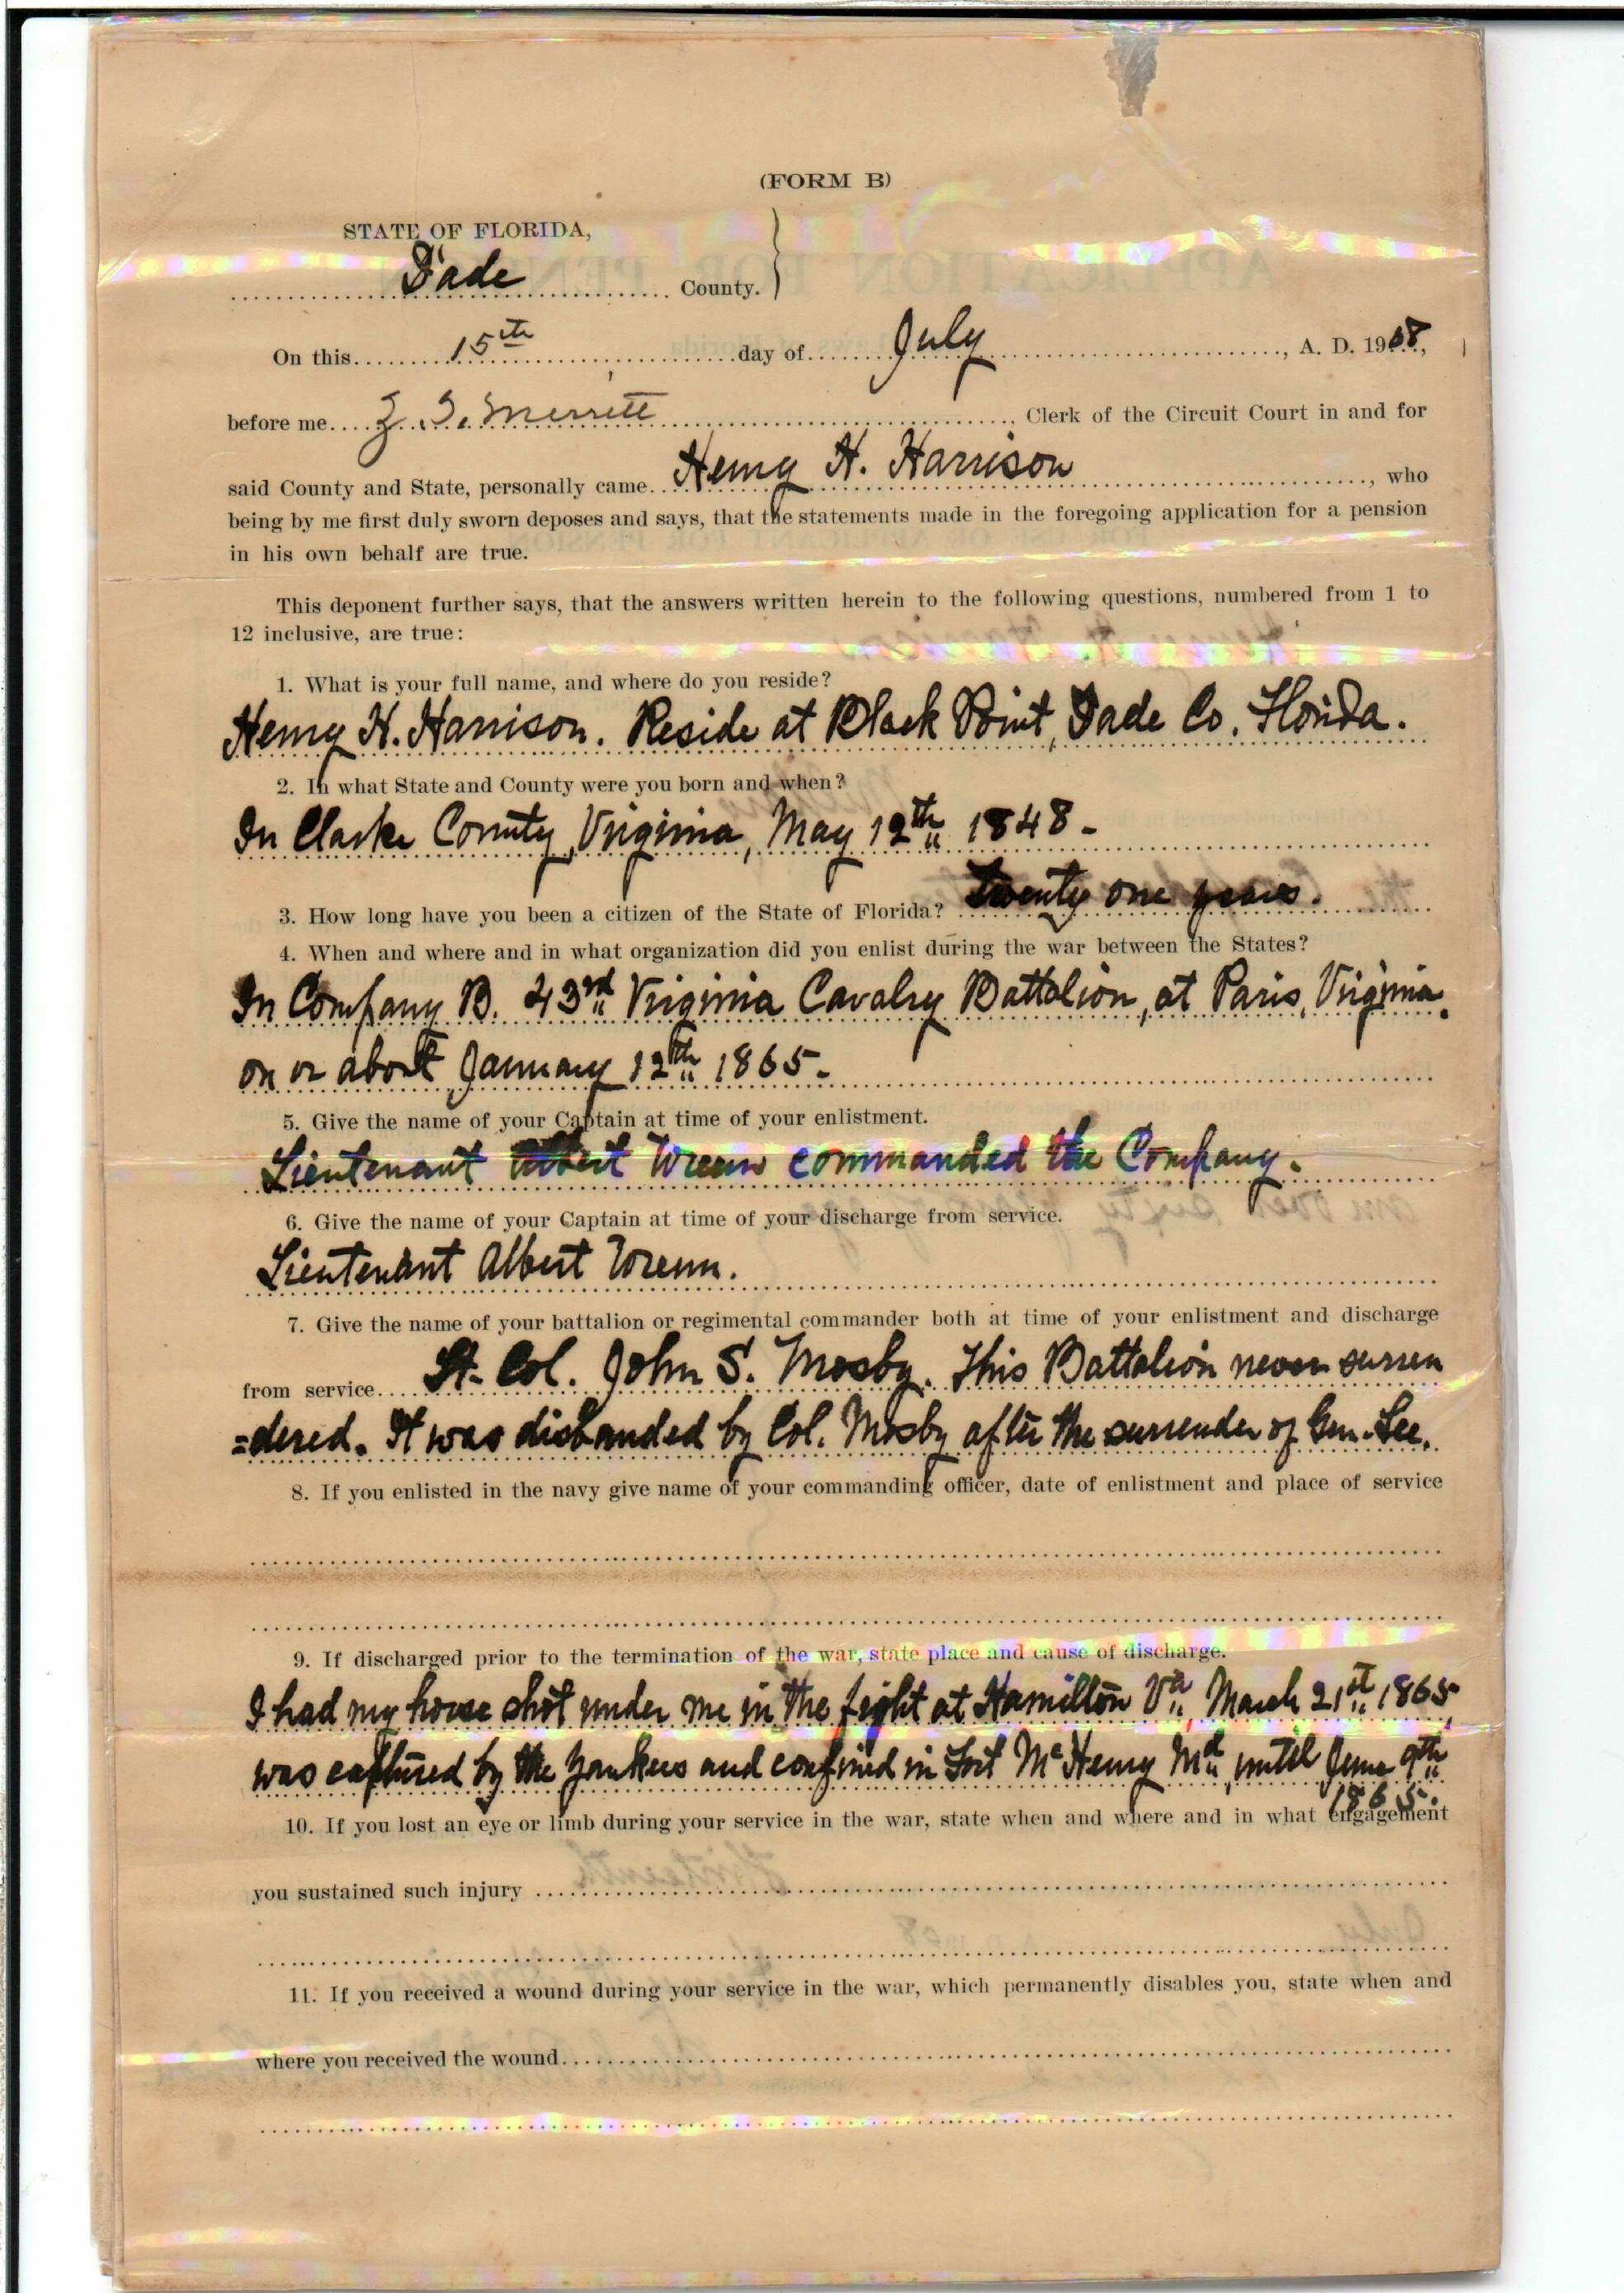 (FORM B)
STATE OF FLORIDA,
Dade County.
On this 15th day of July, A. D. 1908,
before me Z. T. Merritt, Clerk of the Circuit Court in and for
said County and State, personally came Henry H. Harrison, who
being by me first duly sworn deposes and says, that the statements made in the foregoing application for a pension
in his own behalf are true.
This deponent further says, that the answers written herein to the following questions, numbered from 1 to
12 inclusive, are true:
1. What is your full name, and where do you reside?
Henry H. Harrison. Reside at Black Point, Dade Co. Florida.
2. In what State and County were you born and when?
In Clarke County, Virginia, May 12th 1848-
3. How long have you been a citizen of the State of Florida? Twenty one years.
4. When and where and in what organization did you enlist during the war between the States?
In Company B. 43rd Virginia Cavalry Battalion, at Paris, Virginia.
on or about January 12th 1865-
5. Give the name of your Captain at time of your enlistment.
Lieutenant Albert Wrenn commanded the Company.
6. Give the name of your Captain at time of your discharge from service.
Lieutenant Albert Wrenn.
7. Give the name of your battalion or regimental commander both at time of your enlistment and discharge
from service Lt. Col. John S. Mosby. This Battalion never surren
=dered. It was disbanded by Col. Mosby after the surrender of Gen. Lee.
8. If you enlisted in the navy give name of your commanding officer, date of enlistment and place of service
9. If discharged prior to the termination of the war, state place and cause of discharge.
I had my horse shot under me in the fight at Hamilton Va, March 21st 1865,
was captured by the Yankees and confined in Fort McHenry Md, until June 9th
1865.
10. If you lost an eye or limb during your service in the war, state when and where and in what engagement
you sustained such injury
11. If you received a wound during your service in the war, which permanently disables you, state when and
where you received the wound